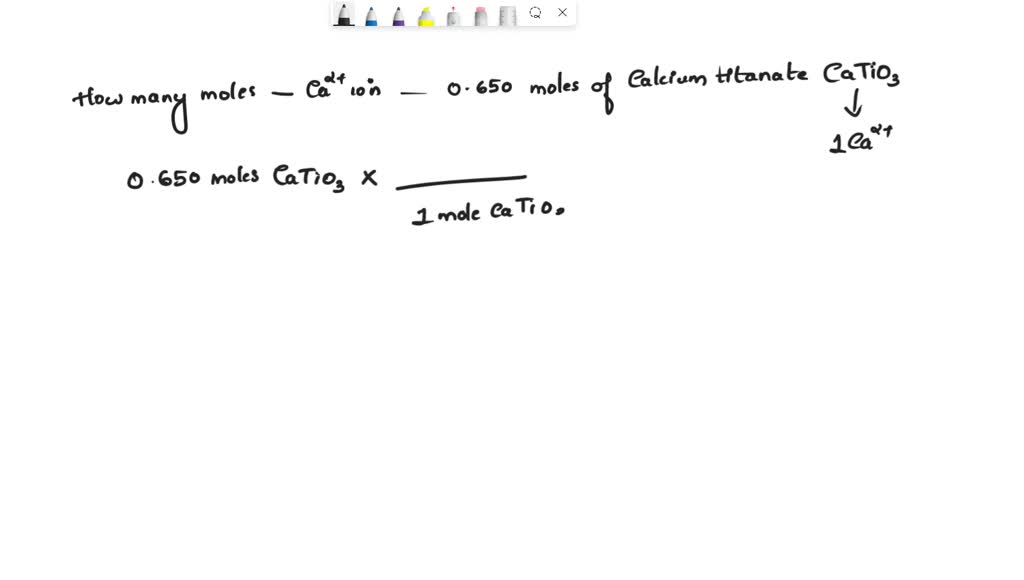 How many moles — Ca²⁺ ion — 0.650 moles of Calcium titanate CaTiO₃
↓
1Ca²⁺
0.650 moles CaTiO₃ ×
1 mole CaTiO